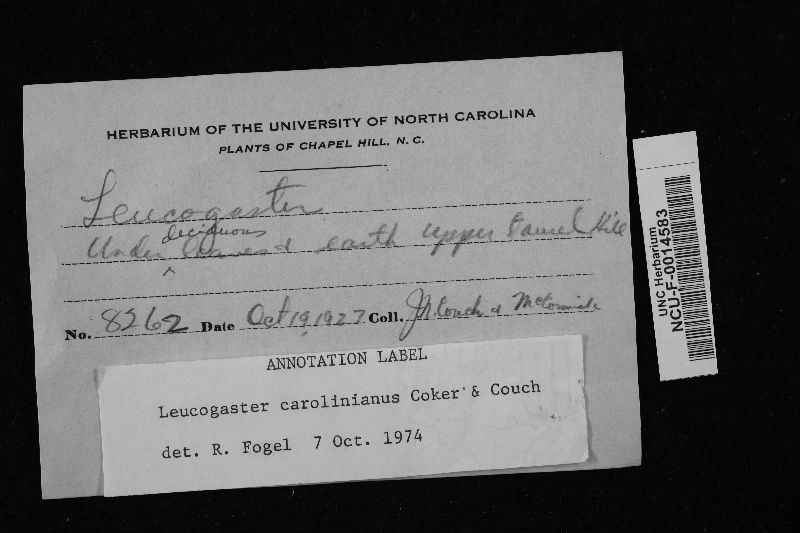 HERBARIUM OF THE UNIVERSITY OF NORTH CAROLINA
PLANTS OF CHAPEL HILL, N. C.
Leucogaster
deciduous
Under leaves & earth upper Laurel Hill
No. 8262 Date Oct 19, 1927 Coll. J.N. Couch & McCormick
ANNOTATION LABEL
Leucogaster carolinianus Coker & Couch
det. R. Fogel 7 Oct. 1974
UNC Herbarium
NCU-F-0014583